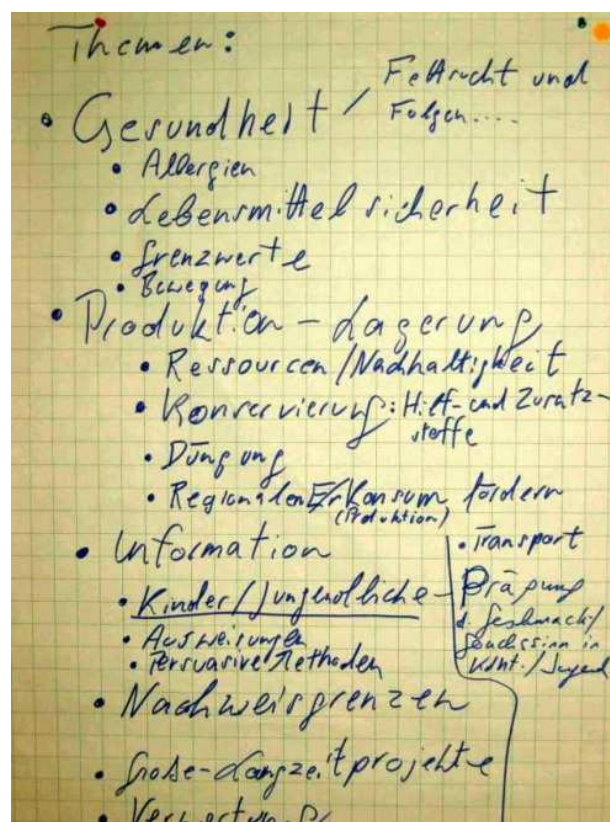 Themen:
• Gesundheit / Fettsucht und
Folgen....
• Allergien
• Lebensmittelsicherheit
• Grenzwerte
• Bewegung
• Produktion – Lagerung
• Ressourcen/Nachhaltigkeit
• Konservierung: Hilf- und Zusatz-
stoffe
• Düngung
• Regionalen Konsum fördern
(Produktion)
• Transport
• Information
• Kinder/Jugendliche – Prägung
d. Geschmack/
in
/Jugend
• Ausweisungen
• Persuasive Methoden
• Nachweisgrenzen
• Große-Langzeitprojekte